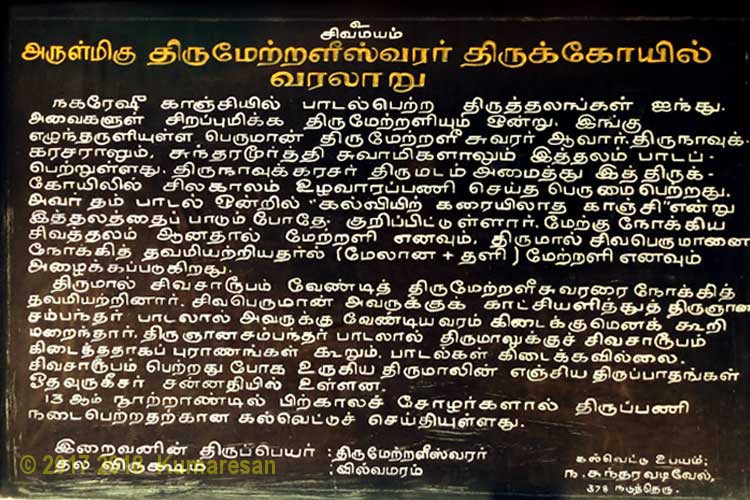 உ
சிவமயம்
அருள்மிகு திருமேற்றளீஸ்வரர் திருக்கோயில்
வரலாறு
நகரேஷீ காஞ்சியில் பாடல்பெற்ற திருத்தலங்கள் ஐந்து.
அவைகளுள் சிறப்புமிக்க திருமேற்றளியும் ஒன்று. இங்கு
எழுந்தருளியுள்ள பெருமான் திருமேற்றளீசுவரர் ஆவார். திருநாவுக்-
கரசராலும், சுந்தரமூர்த்தி சுவாமிகளாலும் இத்தலம் பாடப்-
பெற்றுள்ளது. திருநாவுக்கரசர் திருமடம் அமைத்து இத்திருக்-
கோயிலில் சிலகாலம் உழவாரப்பணி செய்த பெருமைபெற்றது.
அவர் தம் பாடல் ஒன்றில் "கல்வியிற் கரையிலாத காஞ்சி" என்று
இத்தலத்தைப் பாடும் போதே குறிப்பிட்டுள்ளார். மேற்கு நோக்கிய
சிவத்தலம் ஆனதால் மேற்றளி எனவும், திருமால் சிவபெருமானை
நோக்கித் தவமியற்றியதால் (மேலான + தளி) மேற்றளி எனவும்
அழைக்கப்படுகிறது.
திருமால் சிவசாரூபம் வேண்டித் திருமேற்றளீசுவரரை நோக்கித்
தவமியற்றினார். சிவபெருமான் அவருக்குக் காட்சியளித்துத் திருஞான
சம்பந்தர் பாடலால் அவருக்கு வேண்டியவரம் கிடைக்குமெனக் கூறி
மறைந்தார். திருஞானசம்பந்தர் பாடலால் திருமாலுக்குச் சிவசாரூபம்
கிடைத்ததாகப் புராணங்கள் கூறும். பாடல்கள் கிடைக்கவில்லை.
சிவசாரூபம் பெற்றது போக உருகிய திருமாலின் எஞ்சிய திருப்பாதங்கள்
ஓதவுருகீசர் சன்னதியில் உள்ளன.
13 ஆம் நூற்றாண்டில் பிற்காலச் சோழர்களால் திருப்பணி
நடைபெற்றதற்கான கல்வெட்டுச் செய்தியுள்ளது.
இறைவனின் திருப்பெயர் : திருமேற்றளீஸ்வரர்
தல விருட்சம் : வில்வமரம்
கல்வெட்டு உபயம்:
ந. சுந்தரவடிவேல்,
378 நடுத்தெரு.
© 2017-2018 Kumaresan